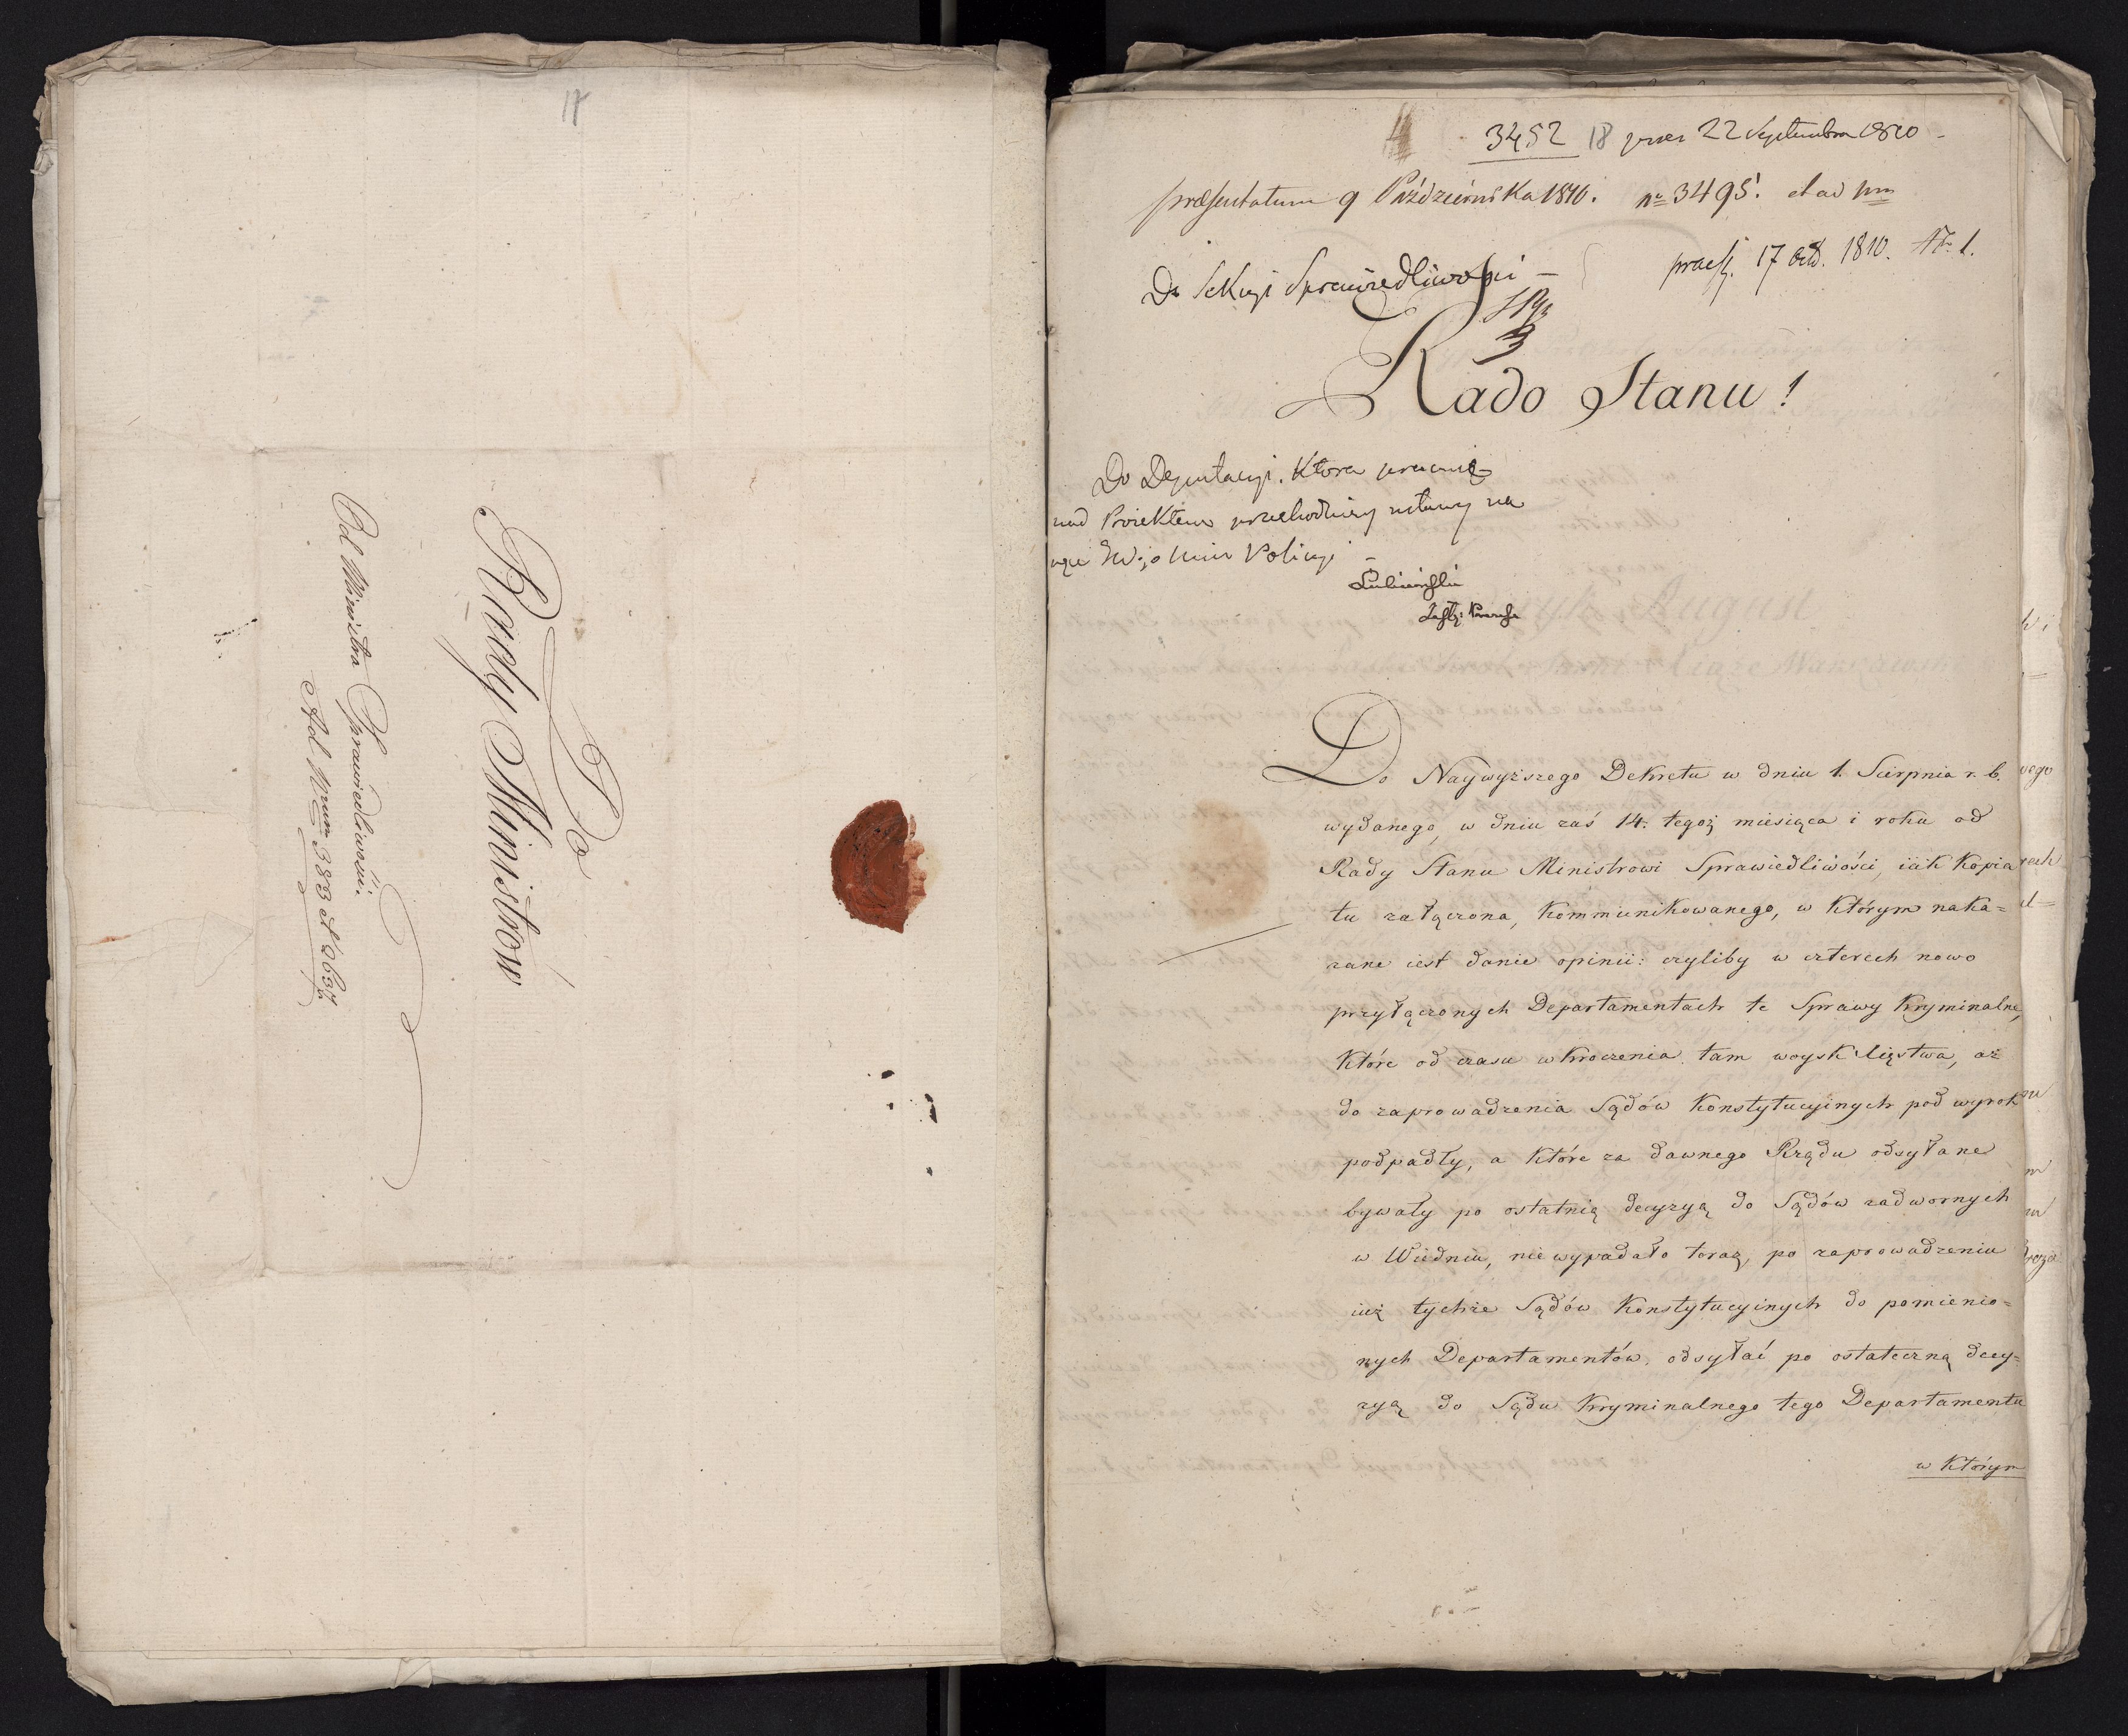 17
Do
Rady Ministrów
Od Ministra Sprawiedliwości.
Ad Nrum 383 et 2637
3452 18 praes 22 Septembra 1810 -
præsentatum 9 Października 1810. no 3495. et ad
praes. 17 Oct. 1810. No 1.
Do Sekcyi Sprawiedliwości -
3
Rado Stanu!
Do Deputacyi. Ktora pracuie
nad Proiektem przechodniey ustawy na
Min Policyi -
Lubieński
Do Naywyższego Dekretu w dniu 1. Sierpnia r. b.
wydanego, w dniu zaś 14. tegoż miesiąca i roku od
Rady Stanu Ministrowi Sprawiedliwości, iak Kopia
tu załączona, Kommunikowanego, w Którym naka=
zane iest danie opinii: czyliby w czterech nowo
przyłączonych Departamentach te Sprawy Kryminalne,
Które od czasu wkroczenia tam woysk Xięstwa, aż
do zaprowadzenia Sądów Konstytucyinych pod wyrok
podpadły, a Które za dawnego Rządu odsyłane
bywały po ostatnią decyzyą do Sądów nadwornych
w Wiedniu, nie wypadało teraz, po zaprowadzeniu
iuż tychże Sądów Konstytucyinych do pomienio=
nych Departamentów, odsyłać po ostateczną decy=
zyą do Sądu Kryminalnego tego Departamentu
w Którym